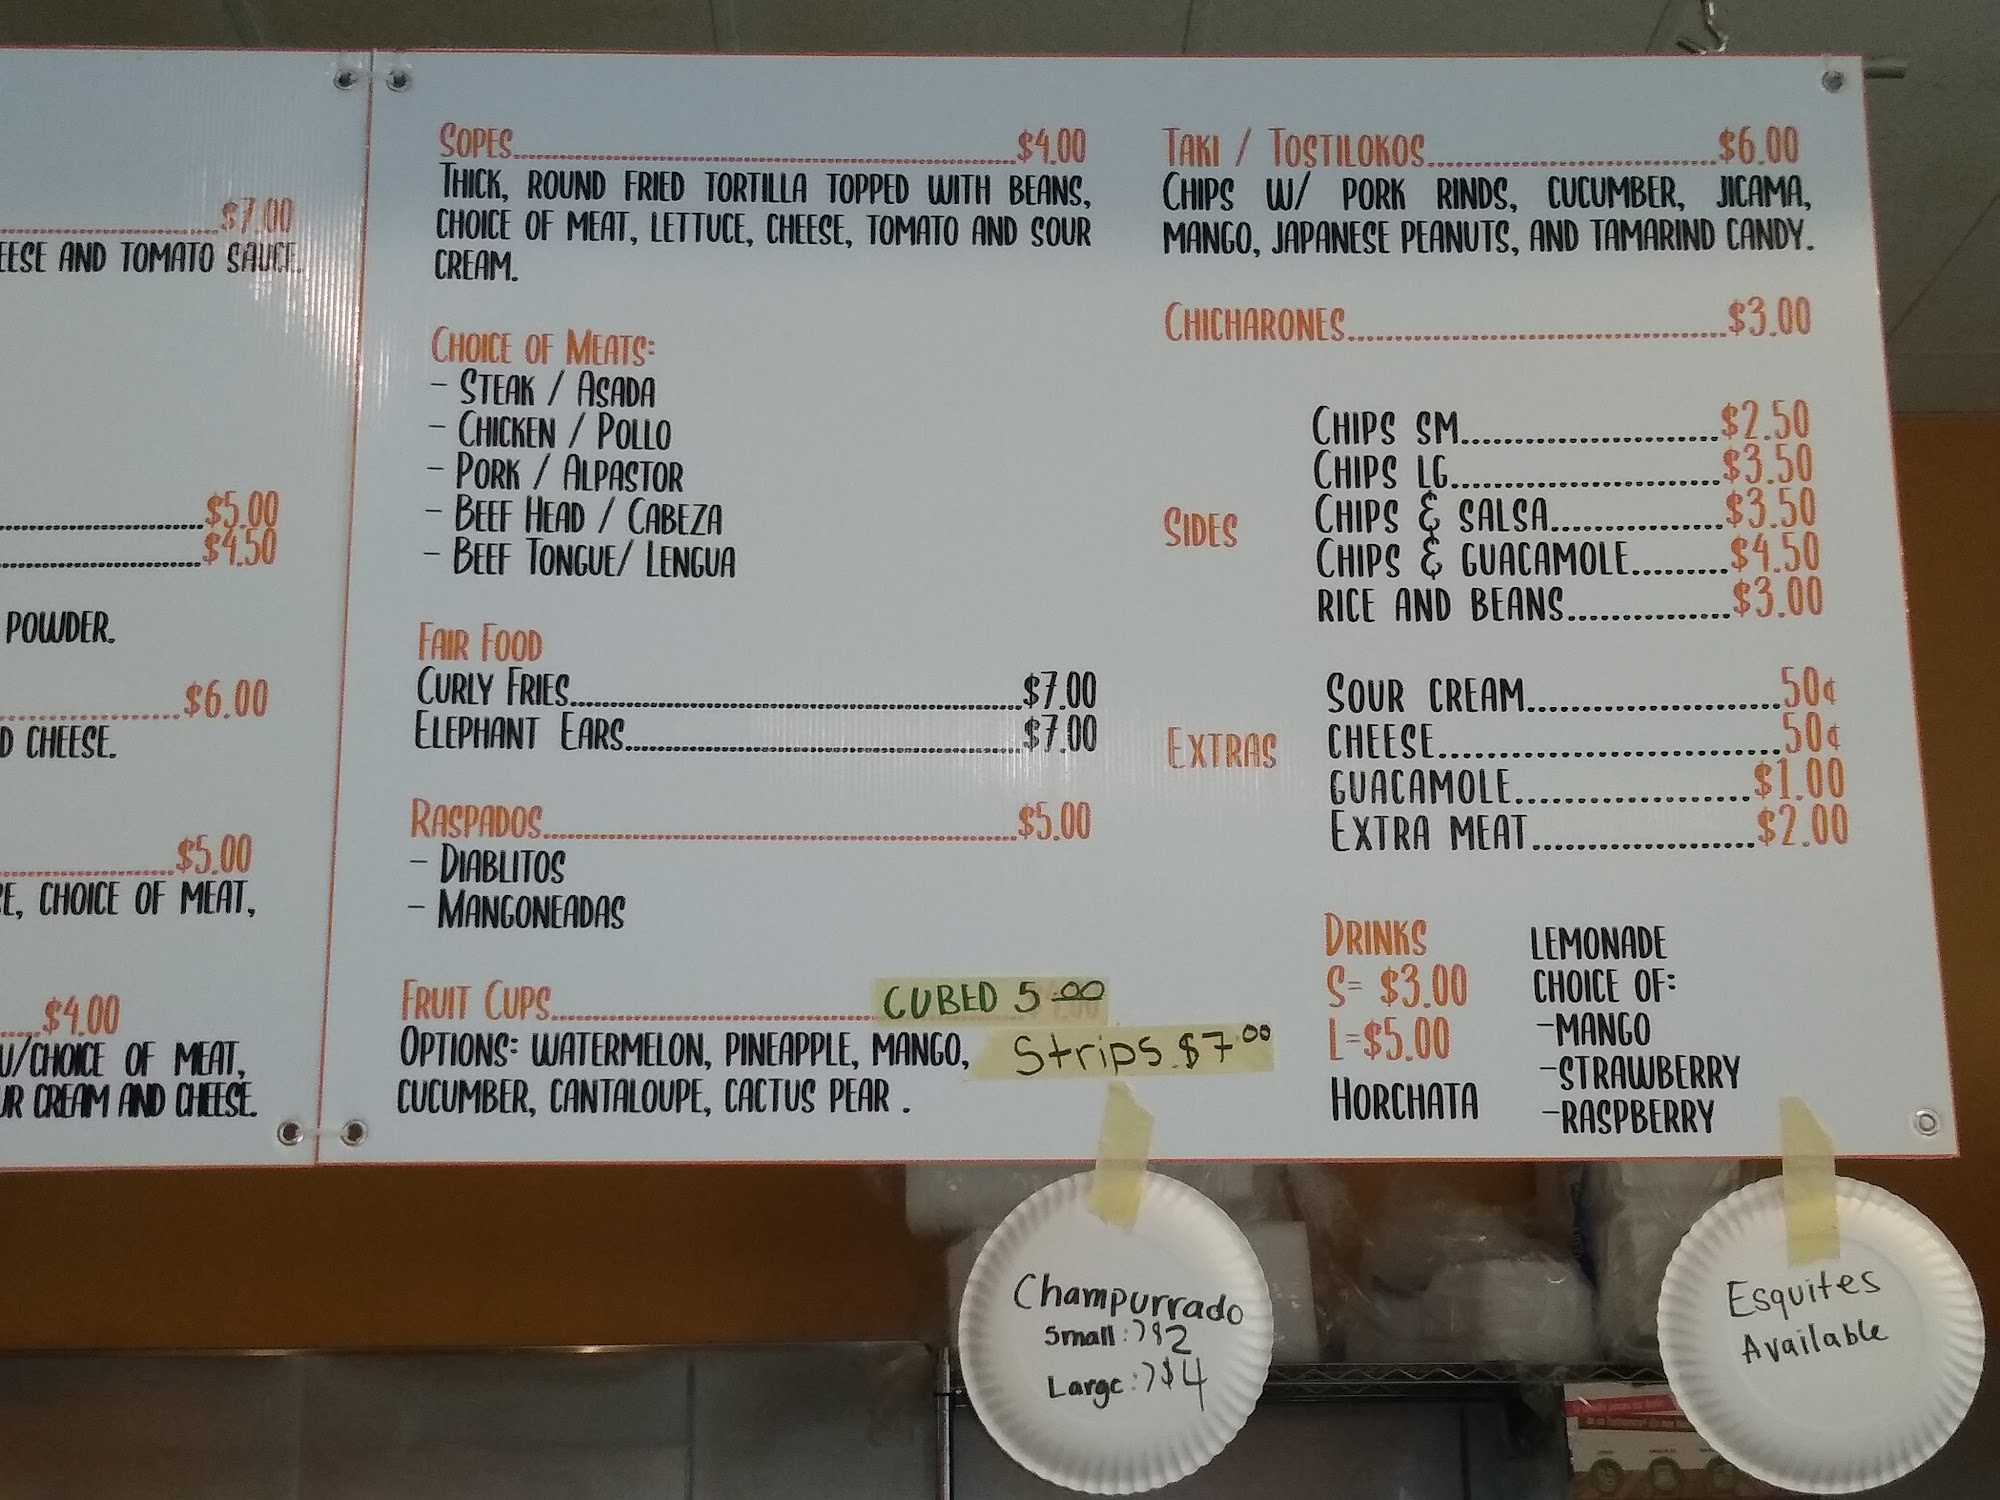 $7.00
EESE AND TOMATO SAUCE.
$5.00
$4.50
POWDER.
$6.00
D CHEESE.
$5.00
E, CHOICE OF MEAT,
$4.00
W/CHOICE OF MEAT,
UR CREAM AND CHEESE.
SOPES..........$4.00
THICK, ROUND FRIED TORTILLA TOPPED WITH BEANS,
CHOICE OF MEAT, LETTUCE, CHEESE, TOMATO AND SOUR
CREAM.
CHOICE OF MEATS:
- STEAK / ASADA
- CHICKEN / POLLO
- PORK / ALPASTOR
- BEEF HEAD / CABEZA
- BEEF TONGUE/ LENGUA
FAIR FOOD
CURLY FRIES..........$7.00
ELEPHANT EARS..........$7.00
RASPADOS..........$5.00
- DIABLITOS
- MANGONEADAS
FRUIT CUPS..........CUBED 5.00
OPTIONS: WATERMELON, PINEAPPLE, MANGO, Strips $7.00
CUCUMBER, CANTALOUPE, CACTUS PEAR .
TAKI / TOSTILOKOS..........$6.00
CHIPS W/ PORK RINDS, CUCUMBER, JICAMA,
MANGO, JAPANESE PEANUTS, AND TAMARIND CANDY.
CHICHARONES..........$3.00
SIDES
CHIPS SM..........$2.50
CHIPS LG..........$3.50
CHIPS & SALSA..........$3.50
CHIPS & GUACAMOLE..........$4.50
RICE AND BEANS..........$3.00
EXTRAS
SOUR CREAM..........50¢
CHEESE..........50¢
GUACAMOLE..........$1.00
EXTRA MEAT..........$2.00
DRINKS
S= $3.00
L=$5.00
HORCHATA
LEMONADE
CHOICE OF:
-MANGO
-STRAWBERRY
-RASPBERRY
Champurrado
Small:)$2
Large:)$4
Esquites
Available